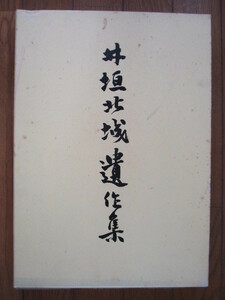 井垣北城遺作集